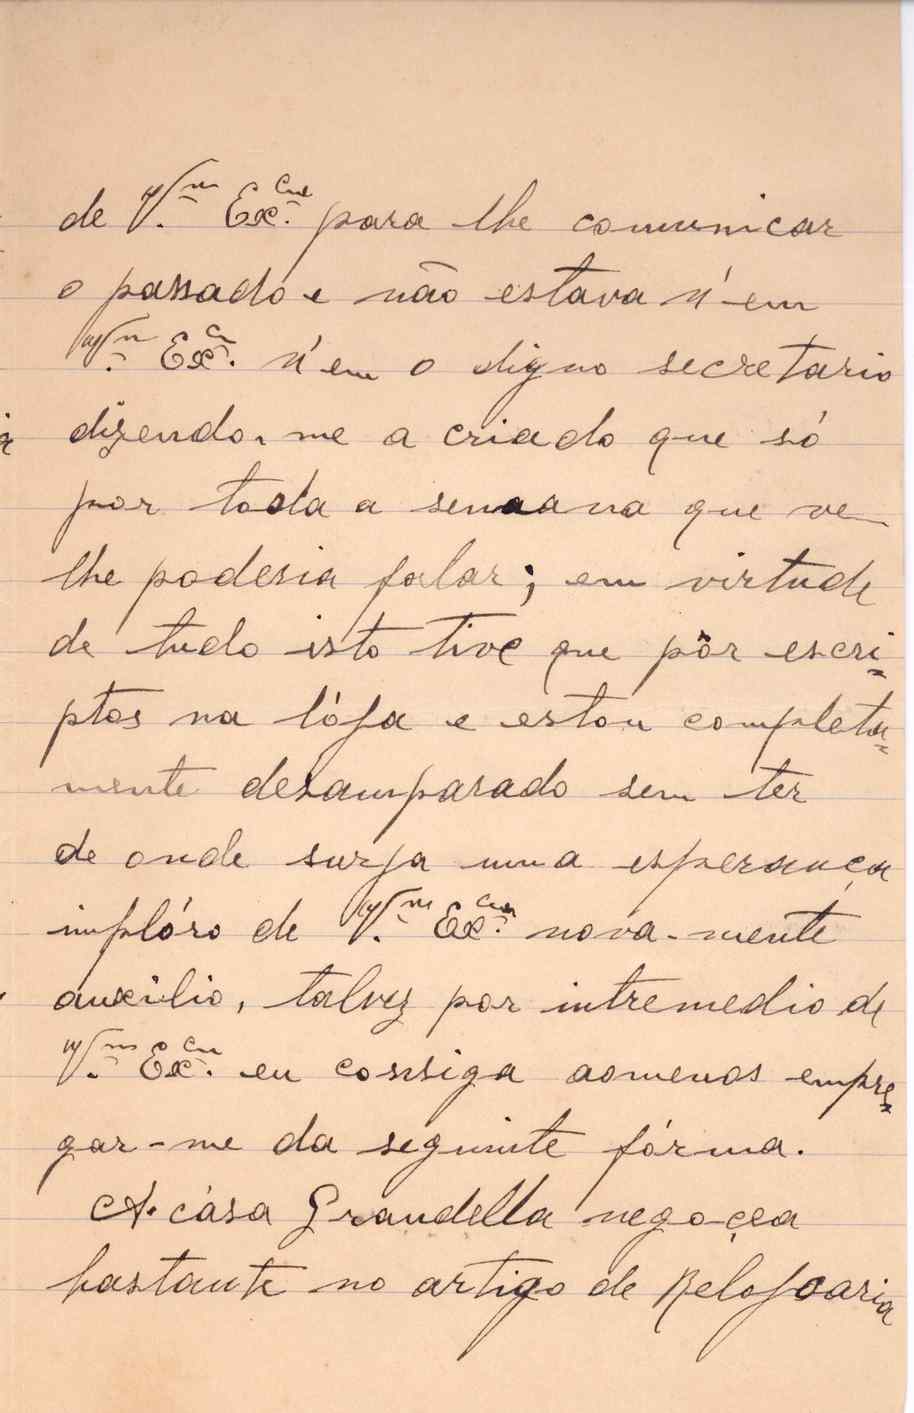 de V.ª Ex.cia para lhe comunicar
o passado e não estava n'em
V.ª Ex.cia n'em o digno secretario
dizendo-me a criado que só
por toda a semana que ve
lhe poderia falar; em virtude
de tudo isto tive que pôr escri=
ptos na lója e estou completa=
mente desamparado sem ter
de onde surja uma esperança
implóro de V.ª Ex.cia nova-mente
auxilio, talvez por intremedio de
V.ª Ex.cia eu consiga aomenos empre=
gar-me da seguinte fórma.
A cása Grandella negoçea
bastante no artigo de Relojoaria